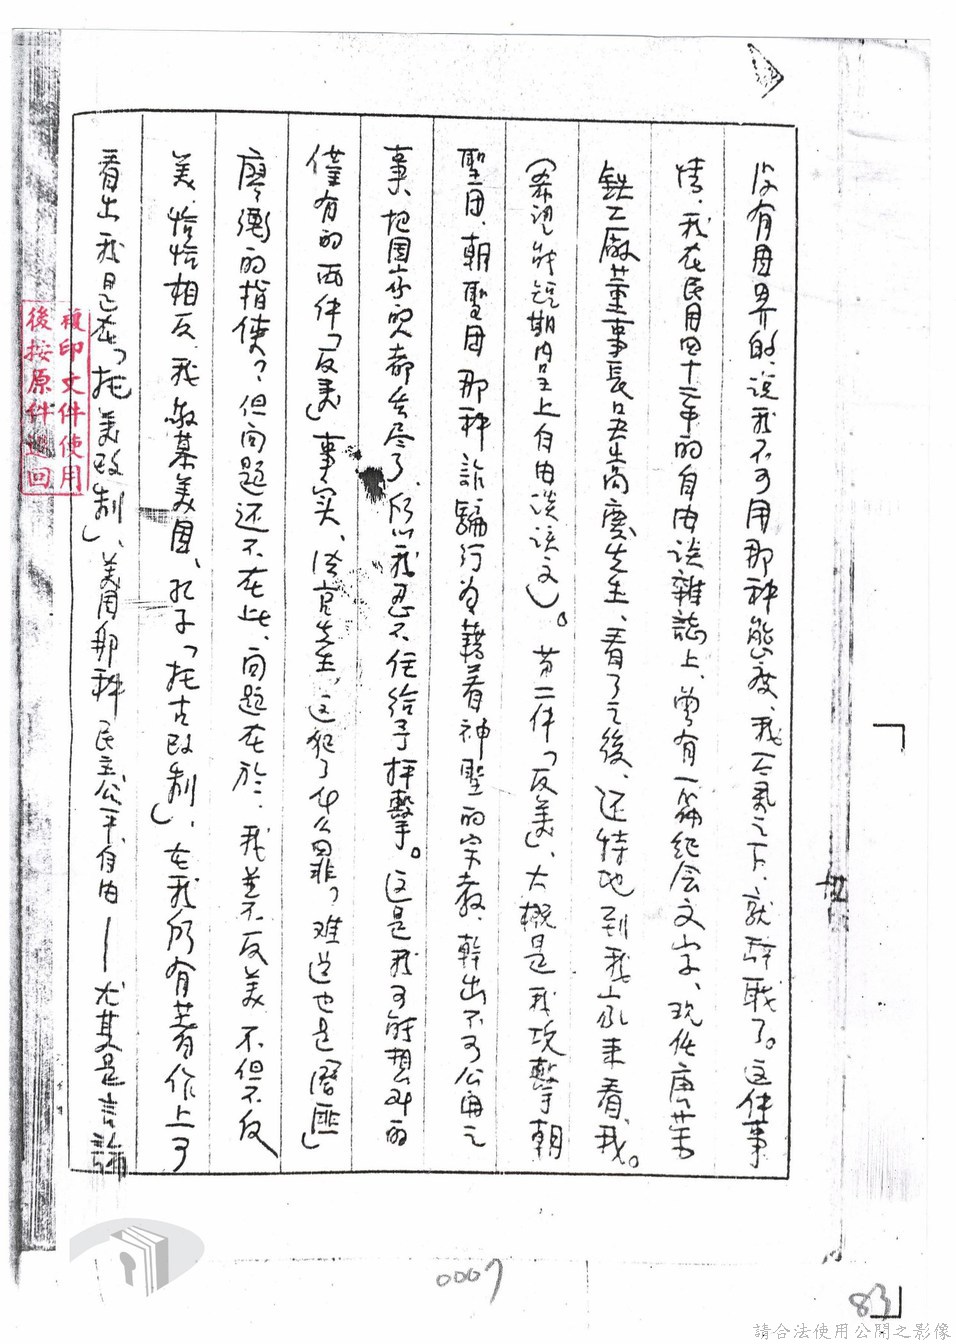 没有母界的、说我不可用那种態度、我一气之下、就辞职了。这件事
情、我在民国四十二年的自由谈雜誌上、曾有一篇纪念文字、现任唐荣
鉄工厰董事長吴嵩慶先生、看了之後、还特地到我家来看我。
(希望能短期内呈上自由谈该文)。第二件「反美」、大概是我攻擊朝
聖团、朝聖团那种詐騙行为藉着神聖的宗教、幹出不可公開之
事、把国家的臭都丢尽了、所以我忍不住给予抨擊。这是我可能想到的
僅有的两件「反美」事实、法官先生、这犯了什么罪?难道也是「匪」
廖衡的指使?但问题还不在此、问题在於、我並不反美不但不反
美、恰恰相反、我敬慕美国、孔子「托古改制」、在我所有著作上可
看出我是在「托美改制」、美国那种民主公平、自由—尤其是言論
複印文件使用
後按原件退回
0007
83
請合法使用公開之影像